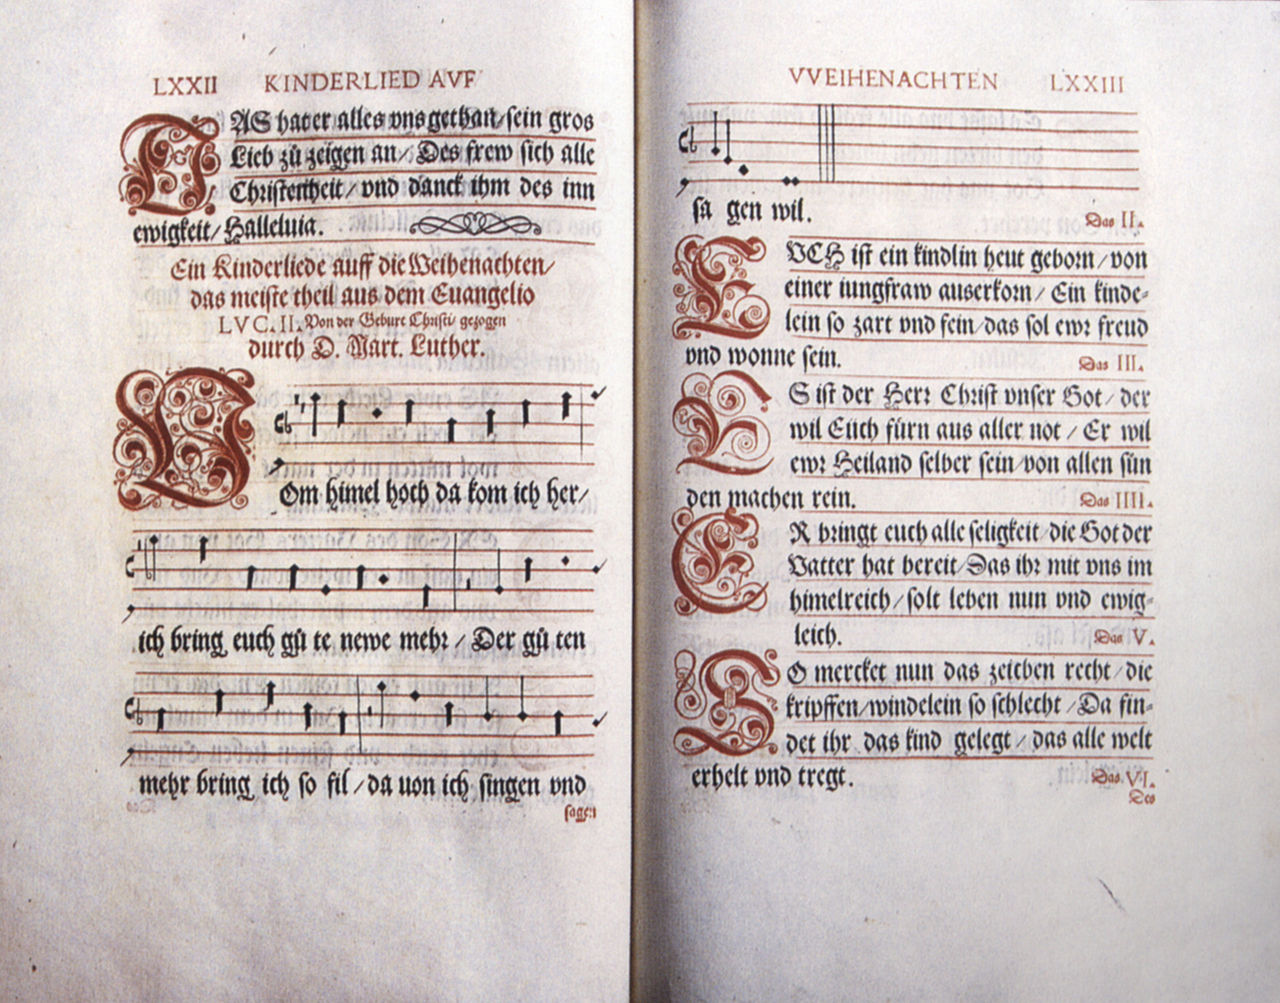 LXXII KINDERLIED AVF
DAS hat er alles vns gethan/sein gros
Lieb zů zeigen an/Des frew sich alle
Christenheit/vnd danck ihm des inn
ewigkeit/Halleluia.
Ein Kinderliede auff die Weihenachten/
das meiste theil aus dem Euangelio
LVC. II. Von der Geburt Christi/gezogen
durch D. Mart. Luther.
VOm himel hoch da kom ich her/
ich bring euch gů te newe mehr/Der gů ten
mehr bring ich so fil/da uon ich singen vnd
sagen
VVEIHENACHTEN LXXIII
sa gen wil.
Das II.
EVCH ist ein kindlin heut geborn/von
einer iungfraw auserkorn/Ein kinde-
lein so zart vnd fein/das sol ewr freud
vnd wonne sein.
Das III.
ES ist der Herr Christ vnser Got/der
wil Euch fürn aus aller not/Er wil
ewr Heiland selber sein/von allen sün
den machen rein.
Das IIII.
ER bringt euch alle seligkeit/die Got der
Vatter hat bereit/Das ihr mit vns im
himelreich/solt leben nun vnd ewig-
leich.
Das V.
SO mercket nun das zeichen recht/die
kripffen/windelein so schlecht/Da fin-
det ihr das kind gelegt/das alle welt
erhelt vnd tregt.
Das VI.
Des